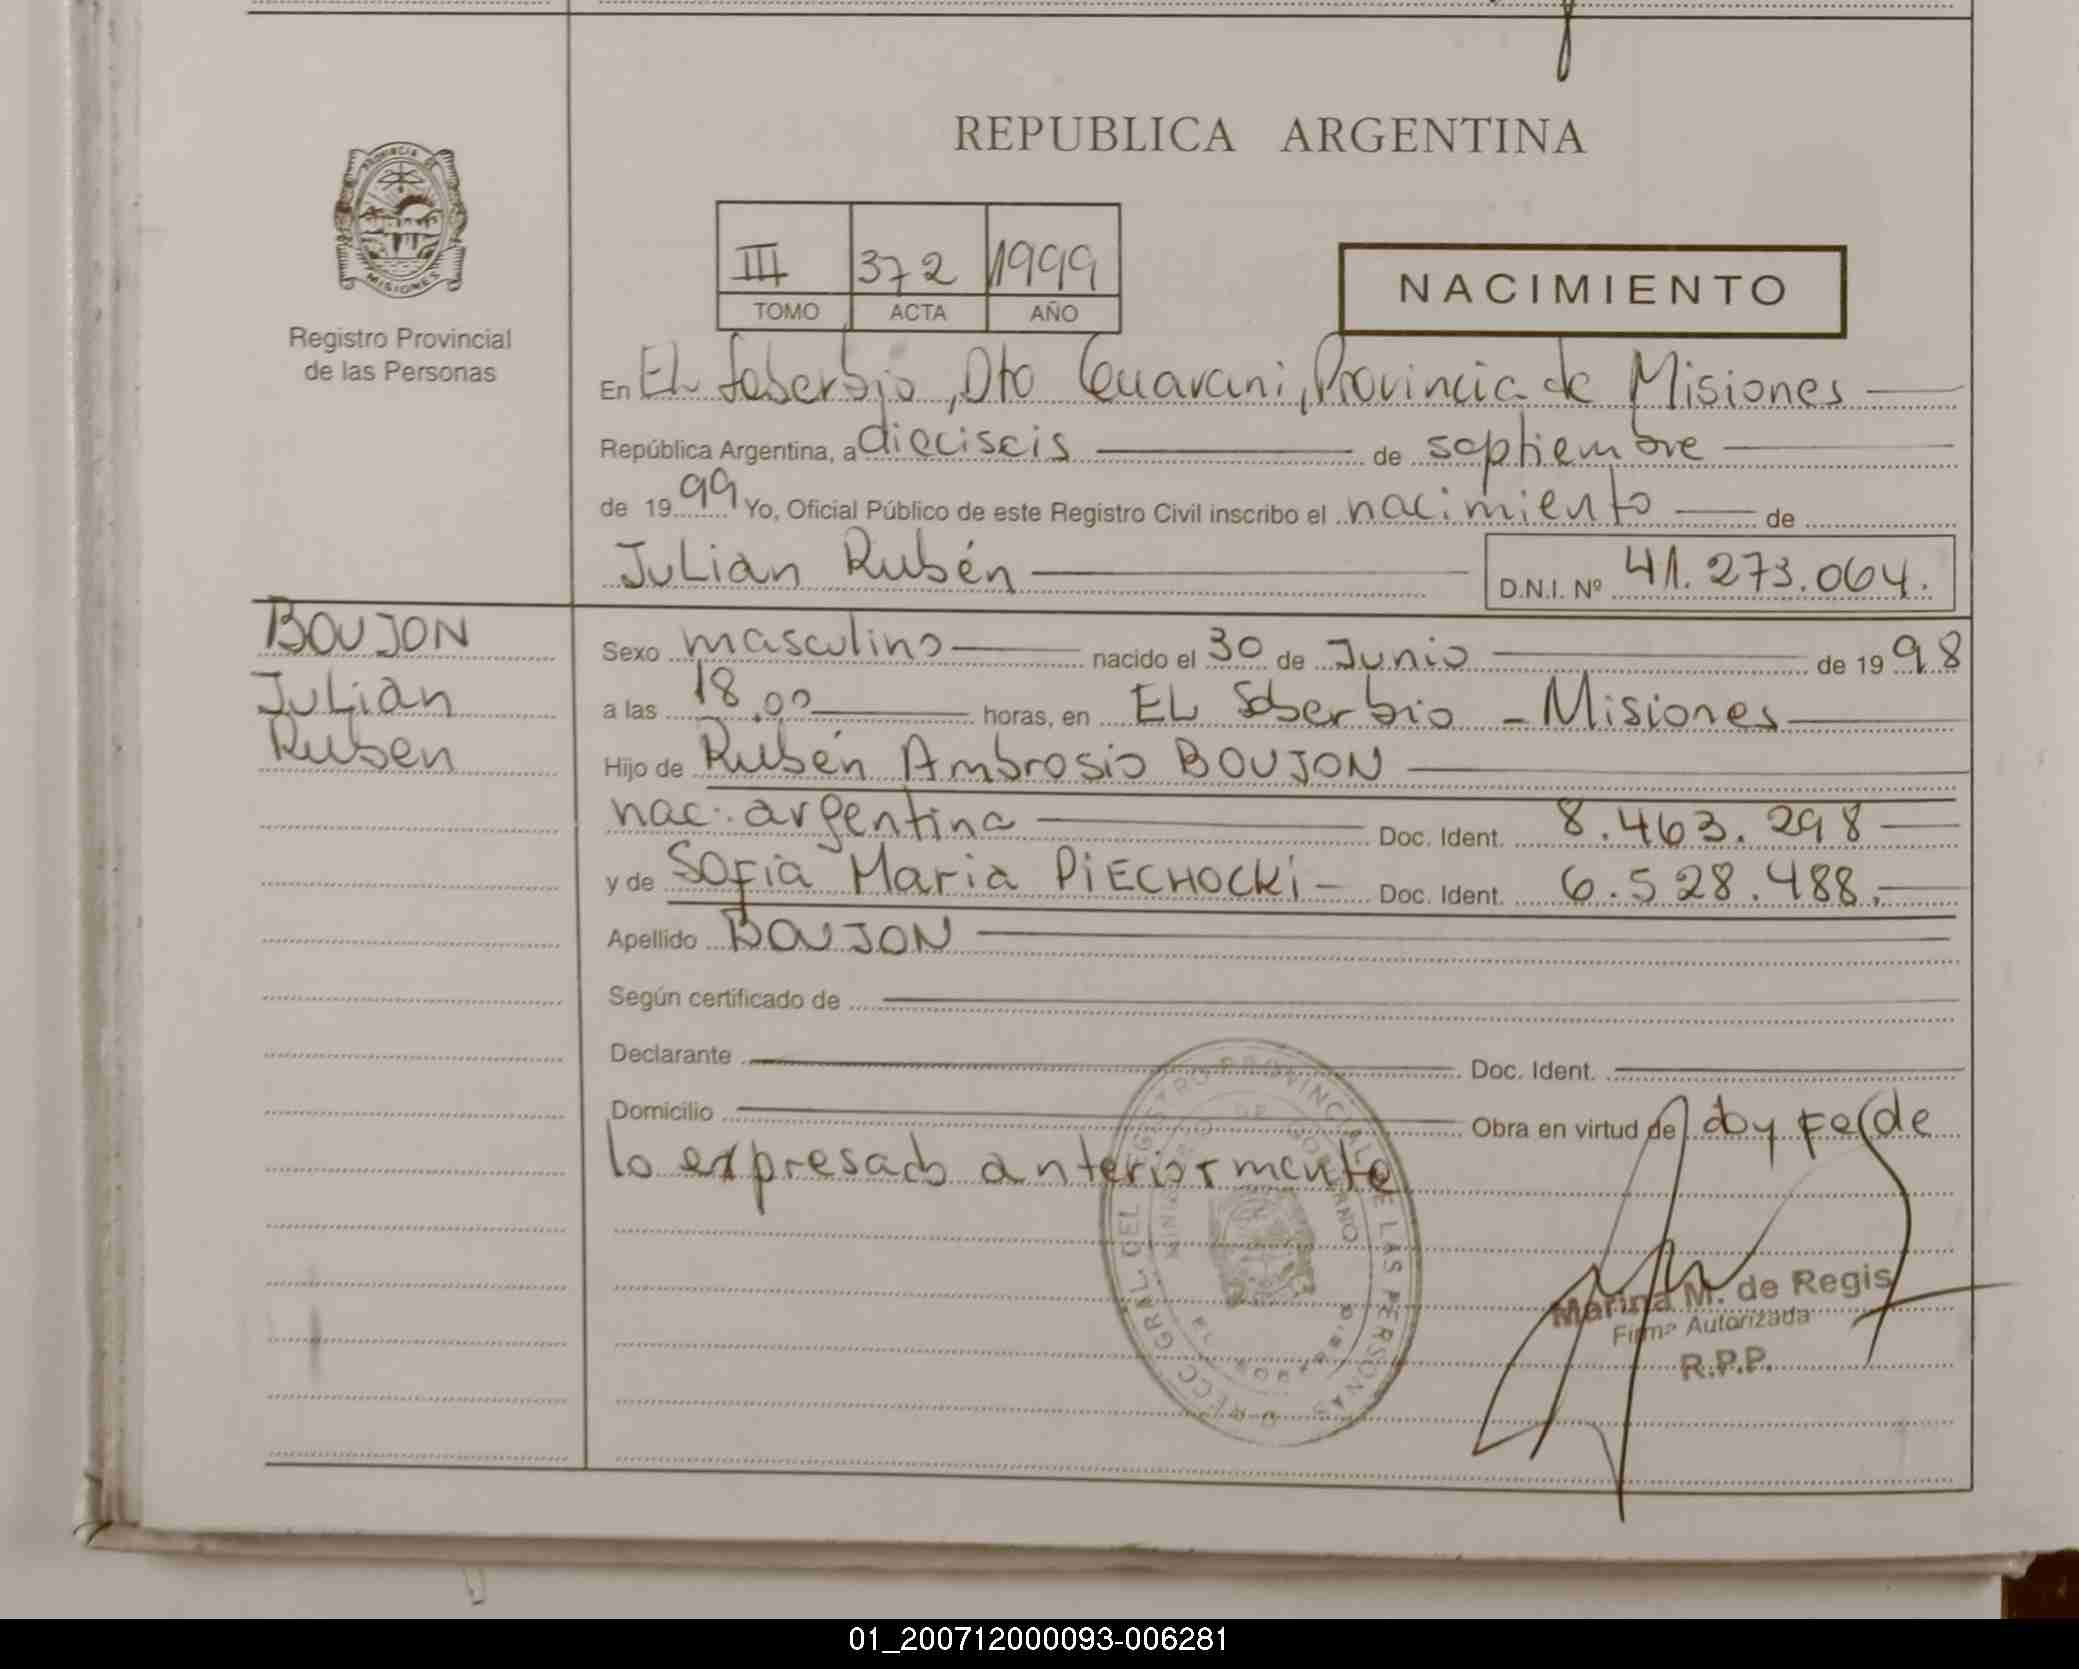 REPUBLICA ARGENTINA
PROVINCIA DE MISIONES
Registro Provincial
de las Personas
III 372 1999
TOMO ACTA AÑO
NACIMIENTO
En El Soberbio, Dto Guarani, Provincia de Misiones
República Argentina, a dieciseis de septiembre
de 1999 Yo, Oficial Público de este Registro Civil inscribo el nacimiento de
Julian Rubén D.N.I. Nº 41.273.064.
BOUJON
Julian
Ruben
Sexo masculino nacido el 30 de Junio de 1998
a las 18.00 horas, en EL Soberbio - Misiones
Hijo de Rubén Ambrosio BOUJON
nac. argentina Doc. Ident. 8.463.298
y de Sofia Maria PiECHOCKi - Doc. Ident. 6.528.488.-
Apellido BOUJON
Según certificado de
Declarante Doc. Ident.
Domicilio Obra en virtud de doy Fe de
lo expresado anteriormente
DIRECC. GRAL. DEL REGISTRO PROVINCIAL DE LAS PERSONAS
MINISTERIO DE GOBIERNO
Marina M. de Regis
Firma Autorizada
R.P.P.
01_200712000093-006281